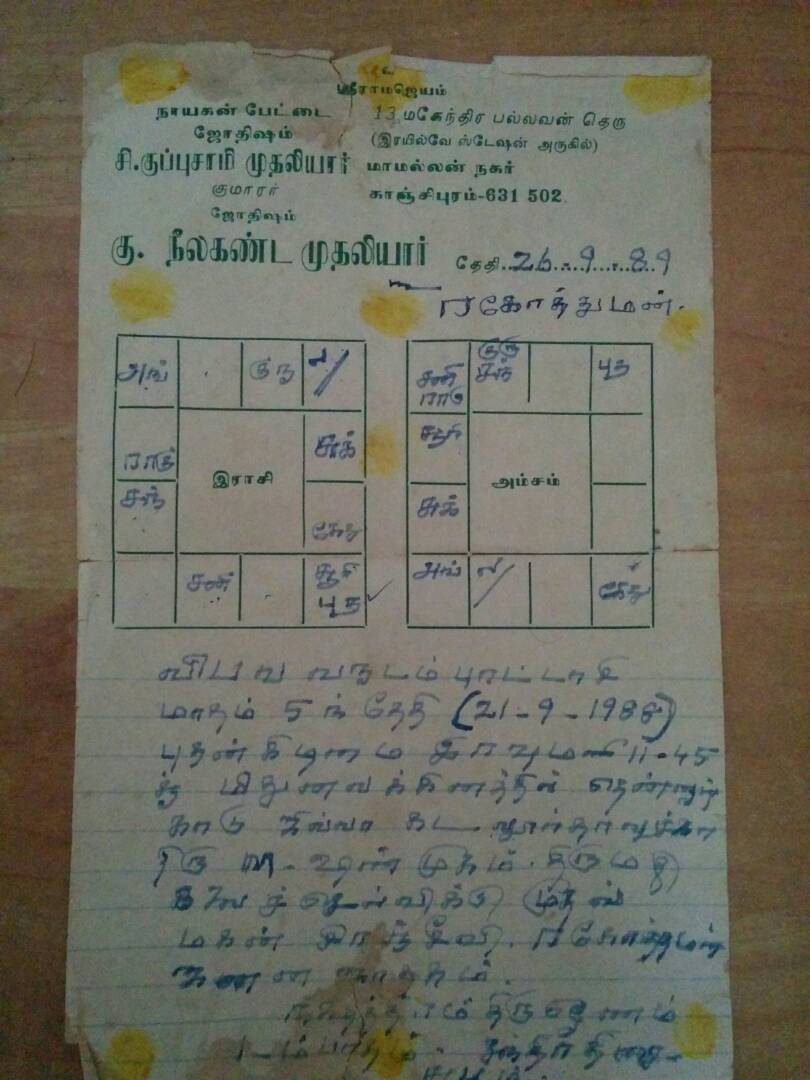 ஸ்ரீராமஜெயம்
நாயகன் பேட்டை
ஜோதிஷம்
சி.குப்புசாமி முதலியார்
குமாரர்
ஜோதிஷம்
கு. நீலகண்ட முதலியார்
13, மகேந்திர பல்லவன் தெரு
(இரயில்வே ஸ்டேஷன் அருகில்)
மாமல்லன் நகர்
காஞ்சிபுரம்-631 502.
தேதி..26..9..89
அங் குரு ல/
ராகு சுக்
இராசி
சந் கேது
சனி சூரி
புத
குரு
சனி சந் புத
ராகு
சூரி
அம்சம்
சுக்
அங் ல/ கேது
விபவ வருடம் புரட்டாசி
மாதம் 5ந் தேதி (21-9-1988)
புதன்கிழமை இரவு மணி 11-45
க்கு மிதுனலக்கினத்தில்
திரு சண்முகம். திருமதி
முதல்
மகன்
ஜனன ஜாதகம்.
நக்ஷத்திரம் திருவோணம்
1-ம் பாதம்.